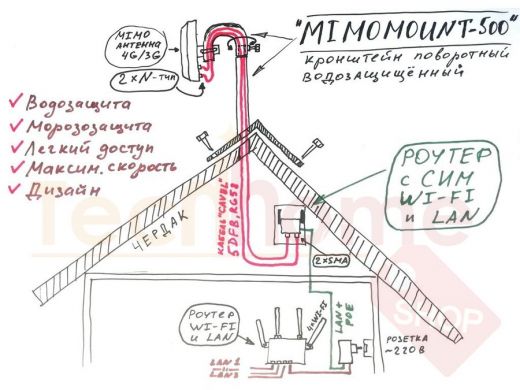 "MIMOMOUNT-500"
кронштейн поворотный
водозащищённый
MIMO
АНТЕННА
4G/3G
2×N-тип
Водозащита
Морозозащита
Легкий доступ
Максим. скорость
Дизайн
РОУТЕР
с СИМ
WI-FI
и LAN
ЧЕРДАК
КАБЕЛЬ "CAVEL"
5DFB, RG58
2×SMA
LAN+
POE
РОУТЕР
WI-FI
и LAN
4×WI-FI
РОЗЕТКА
~220В
LAN1
tech
home
SHOP